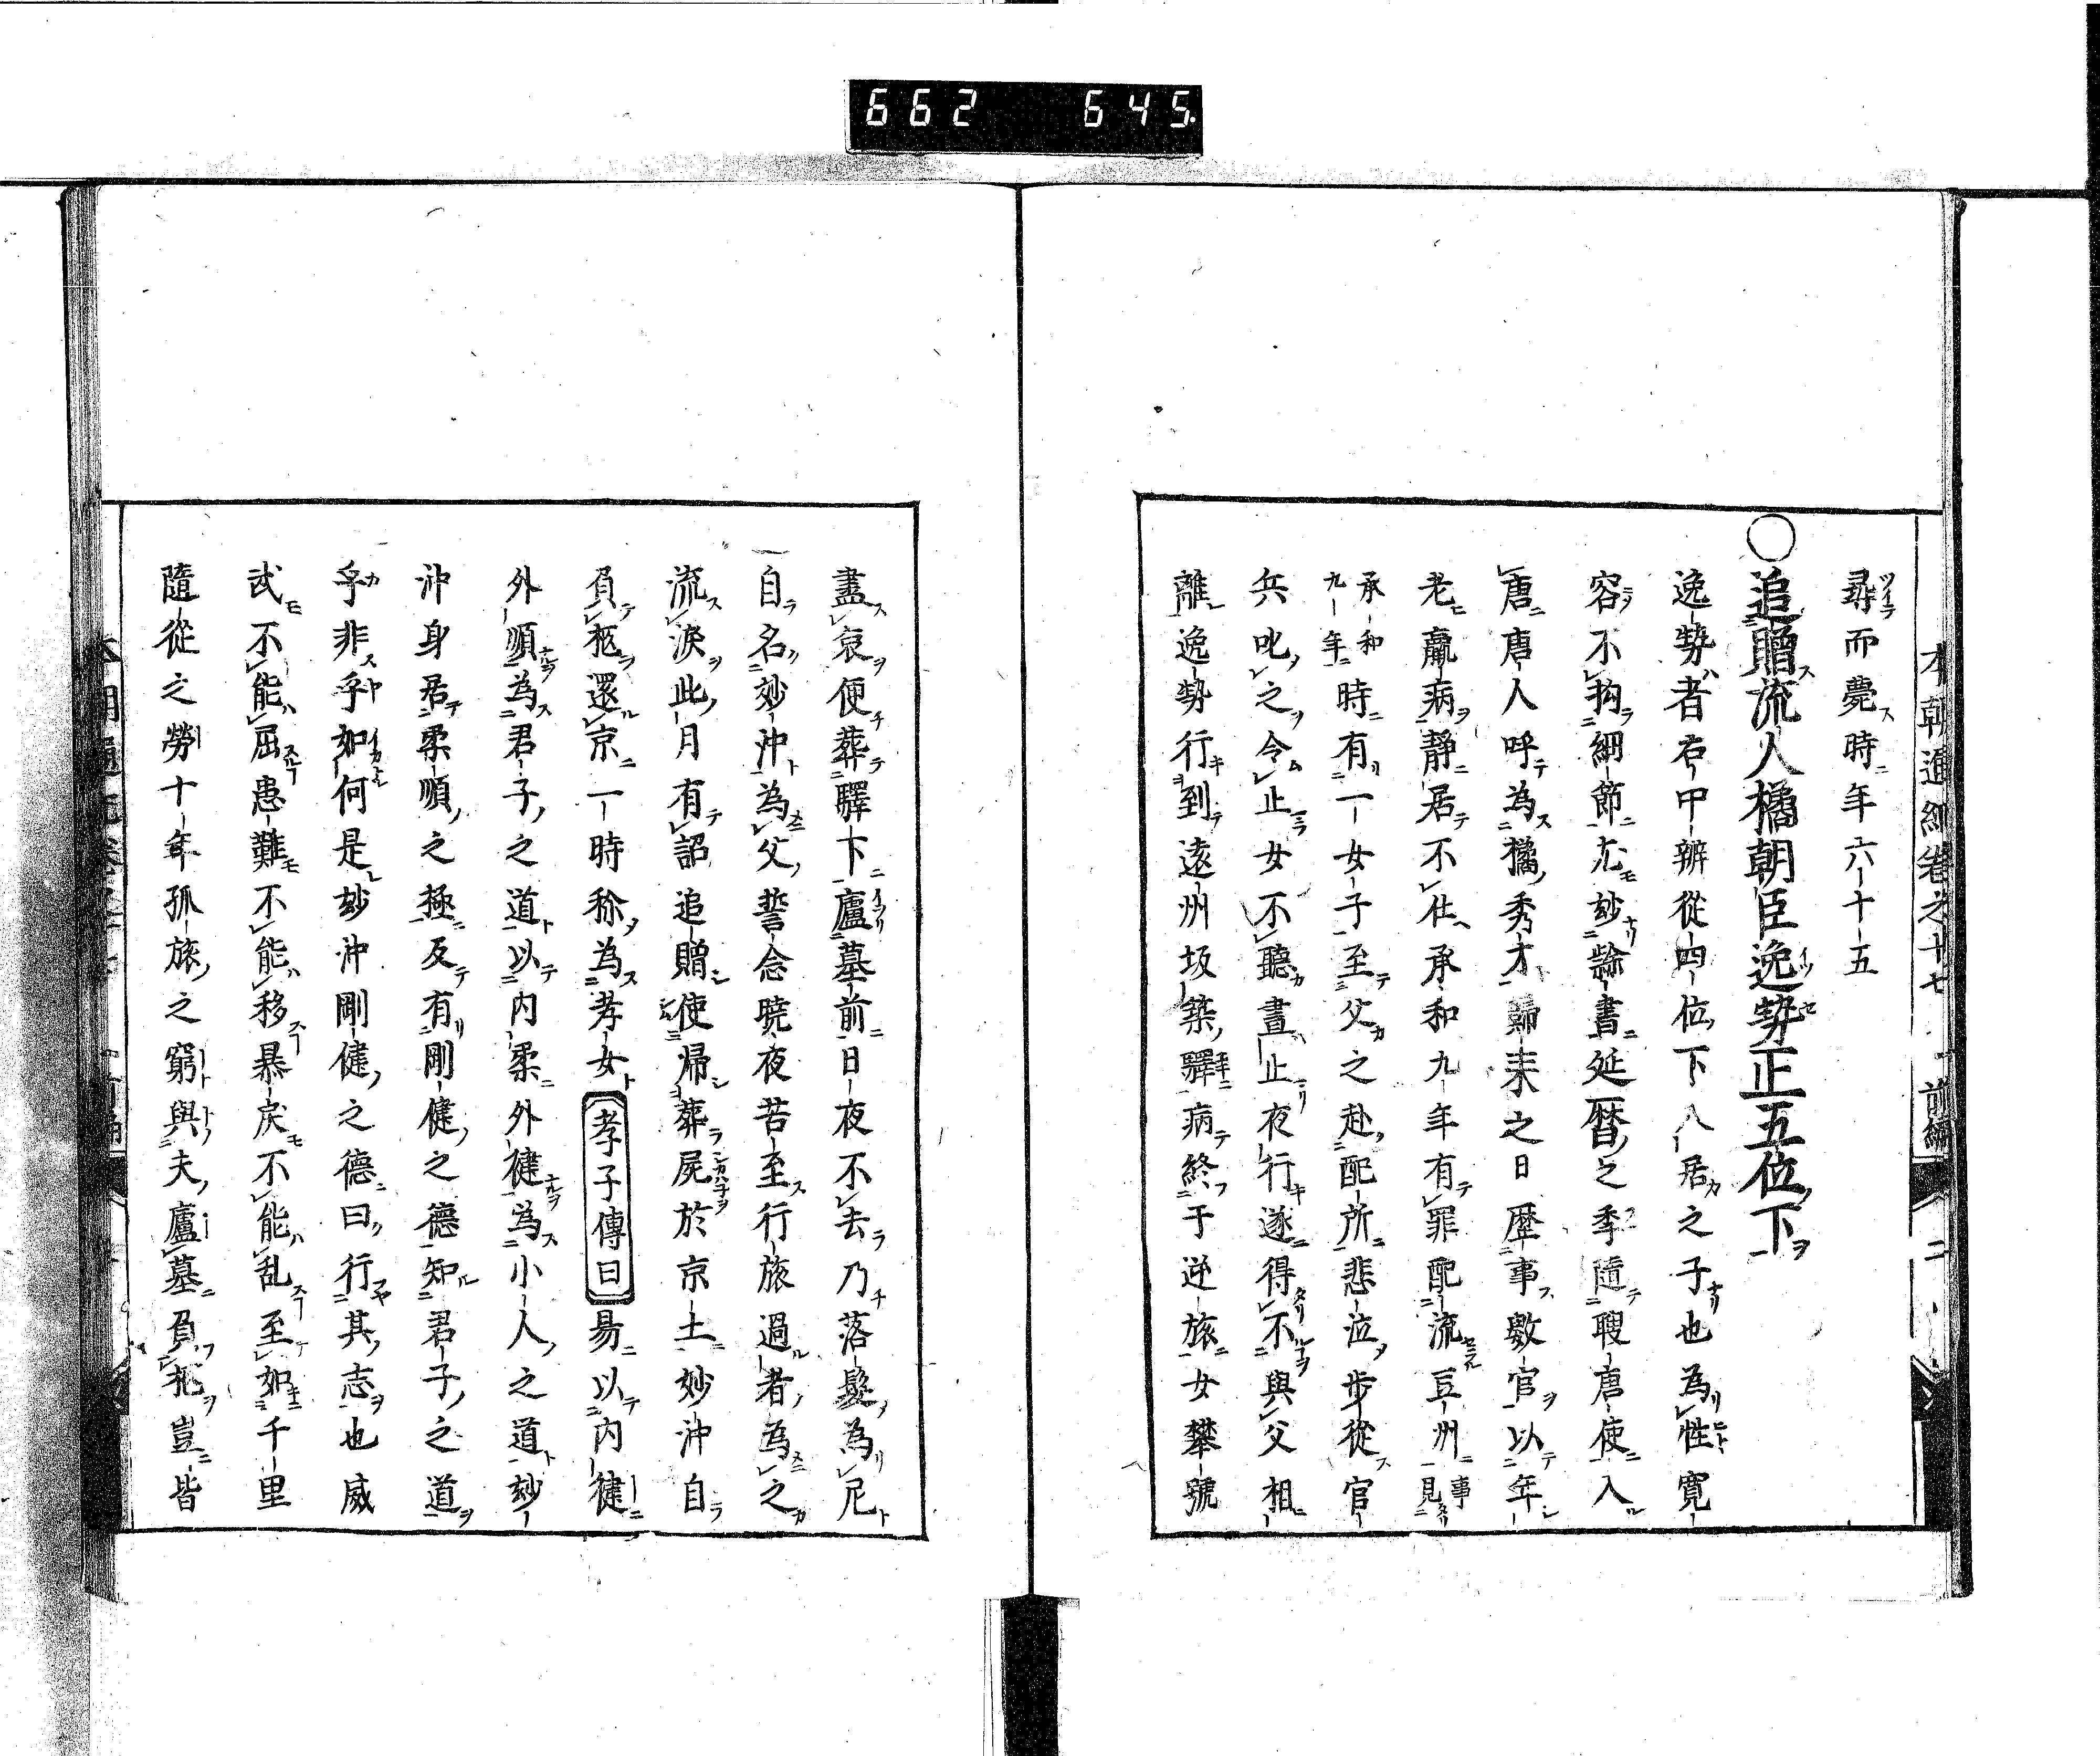 662 645.
本朝通紀卷之十七 前編 二
尋而薨時年六十五
○追贈流人橘朝臣逸勢正五位下
逸勢者右中辨從四位下入居之子也為性寛
容不拘細節尤玅隷書延暦之季隨聘唐使入
唐唐人呼為橘秀才歸来之日歴事數官以年
老羸病靜居不仕承和九年有罪配流豆州事見
承和九年時有一女子至父之赴配所悲泣步從官
兵叱之令止女不聽晝止夜行遂得不與父相
離逸勢行到遠州坂築驛病終于逆旅女攀號
盡哀便葬驛下廬墓前日夜不去乃落髮為尼
自名妙沖為父誓念曉夜苦至行旅過者為之
流淚此月有詔追贈使帰葬屍於京土妙沖自
負柩還京一時稱為孝女孝子傳曰易以内健
外順為君子之道以内柔外健為小人之道玅
沖身居柔順之極反有剛健之德知君子之道
乎非乎如何是玅沖剛健之德曰行其志也威
武不能屈患難不能移暴戻不能乱至如千里
隨從之勞十年孤旅之窮與夫廬墓負柩豈皆